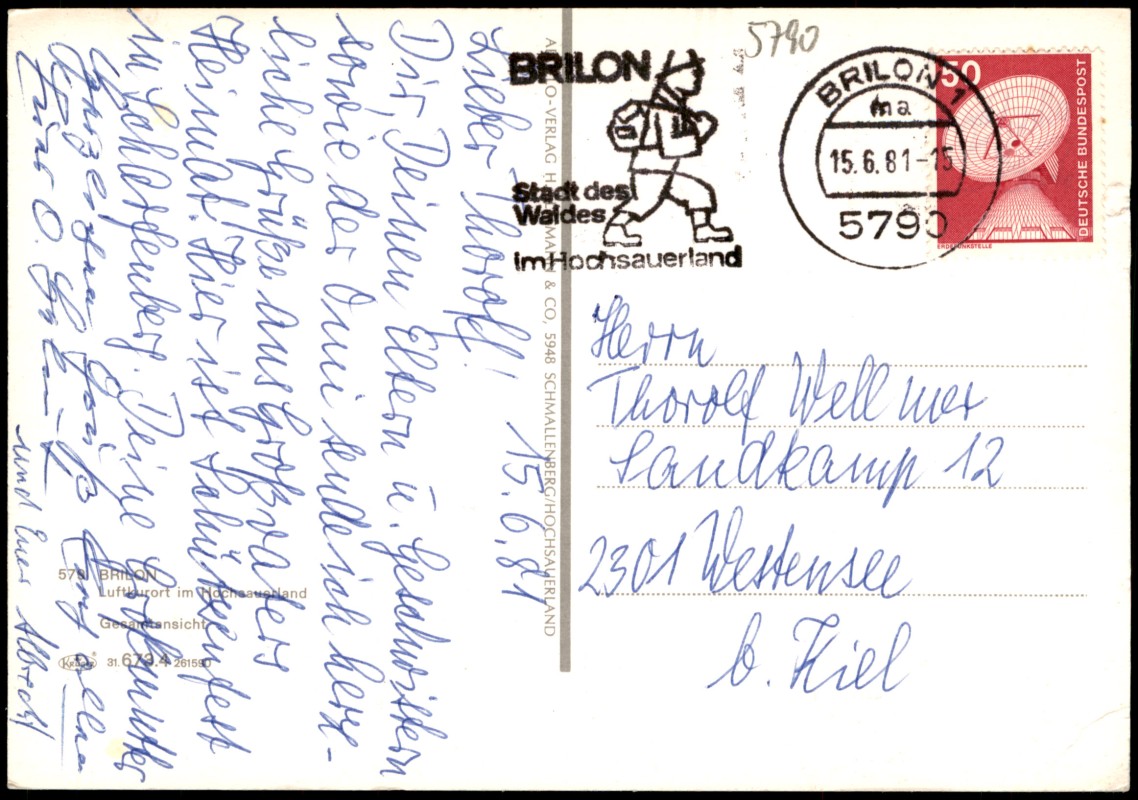 5790
BRILON
Stadt des
Waldes
im Hochsauerland
BRILON 1
ma
15.6.81-15
5790
50
DEUTSCHE BUNDESPOST
ERDEFUNKSTELLE
15.6.81
Lieber Thorolf!
Dir, Deinen Eltern u. Geschwistern
sowie der Omi sende ich herz-
liche Grüße aus Großvaters
Heimat. Hier ist Schützenfest
in Scharfenberg. Deine Großmutter
Gruß
und Euer Albrecht
Herrn
Thorolf Wellmer
Sandkamp 12
2301 Westensee
b. Kiel
& CO, 5948 SCHMALLENBERG/HOCHSAUERLAND
579 BRILON
Luftkurort im Hochsauerland
Gesamtansicht
Krüger 31.673.4 261590